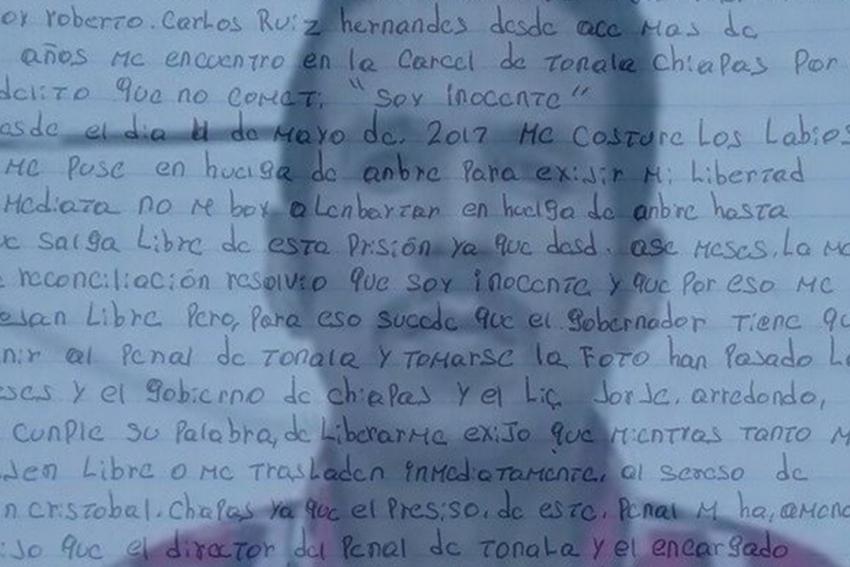 oy roberto. Carlos Ruiz hernandes desde ace mas de
años me encuentro en la carcel de Tonala Chiapas por
delito que no comet: "soy inocente"
esde el dia 11 de mayo de. 2017 me costure Los Labios
me puse en huelga de anbre para exijir mi Libertad
mediata no me boy a Lenbartar en huelga de anbre hasta
e salga Libre de esta prisión ya que desd. ase meses. La me
e reconciliación resolvio que soy inocente y que por eso me
ejan Libre pero, para eso sucede que el gobernador tiene qu
nir al penal de Tonala y tomarse la foto han pasado Lo
ses y el gobierno de chiapas y el Lic Jorje. arredondo,
cunple su palabra, de Liberarme exijo que mientras tanto m
jen Libre o me trasladen inmediatamente, al sereso de
n cristobal. Chapas ya que el presiso. de este. penal m ha, amena
ijo que el director del penal de Tonala y el encargado